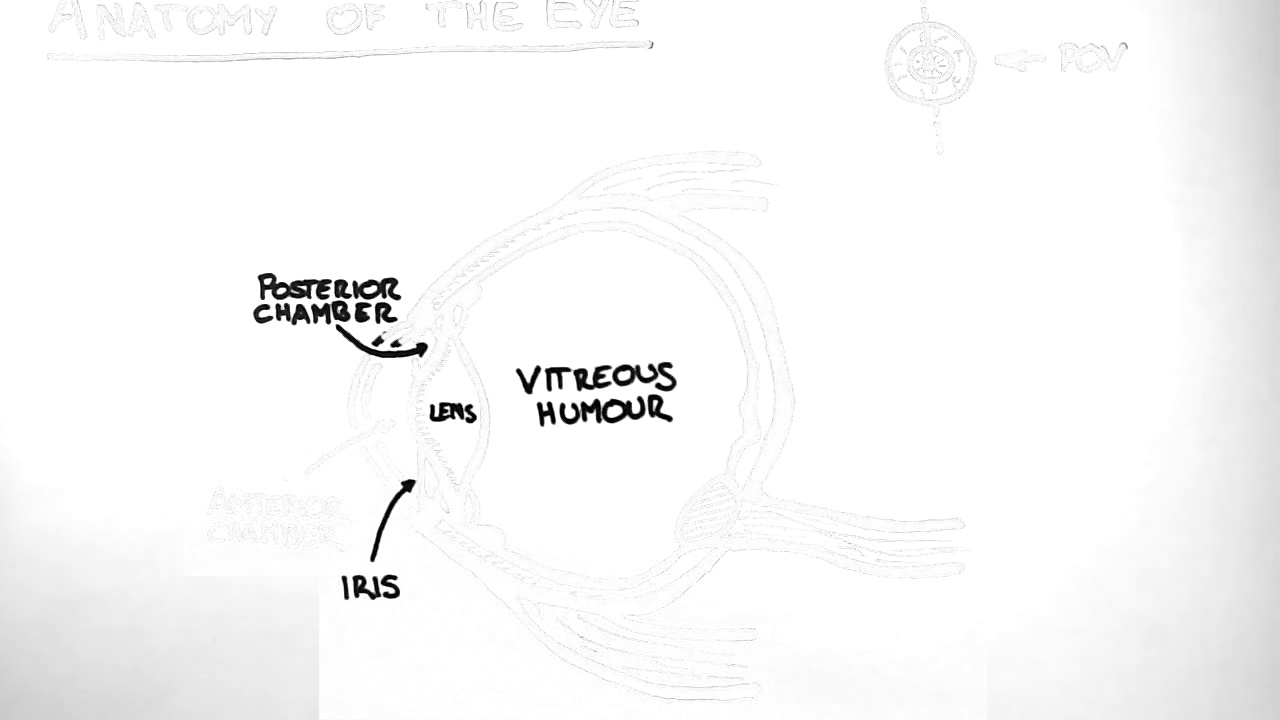 ANATOMY OF THE EYE
POV
POSTERIOR
CHAMBER
VITREOUS
HUMOUR
LENS
ANTERIOR
IRIS